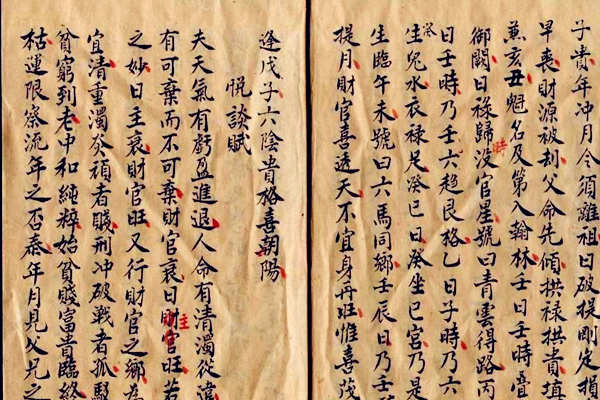 子貴年沖月令須離祖日破提剛定損
早喪財源被刦父命先傾拱禄拱貴填
兼亥丑魁名及第入翰林壬日壬時疊
御闕日禄歸没官星號曰青雲得路丙
日壬時乃壬六趋艮格乙日子時乃六
癸
生兒水衣禄足癸巳日癸坐巳宮乃是
生臨午未號曰六馬同鄉壬辰日乃壬
提月財官喜透天不宜身再旺惟喜茂
逢戊子六陰貴格喜朝陽
悅談賦
夫天氣有虧盈進退人命有清濁從違
有可棄而不可棄財官衰日主財官旺若
之妙日主衰財官旺又行財官之鄉為
宜清重濁頑者賤刑冲破戰者孤
貧窮到老中和純粹始貧賤富貴臨終
枯運限察流年之否泰年月見父兄之